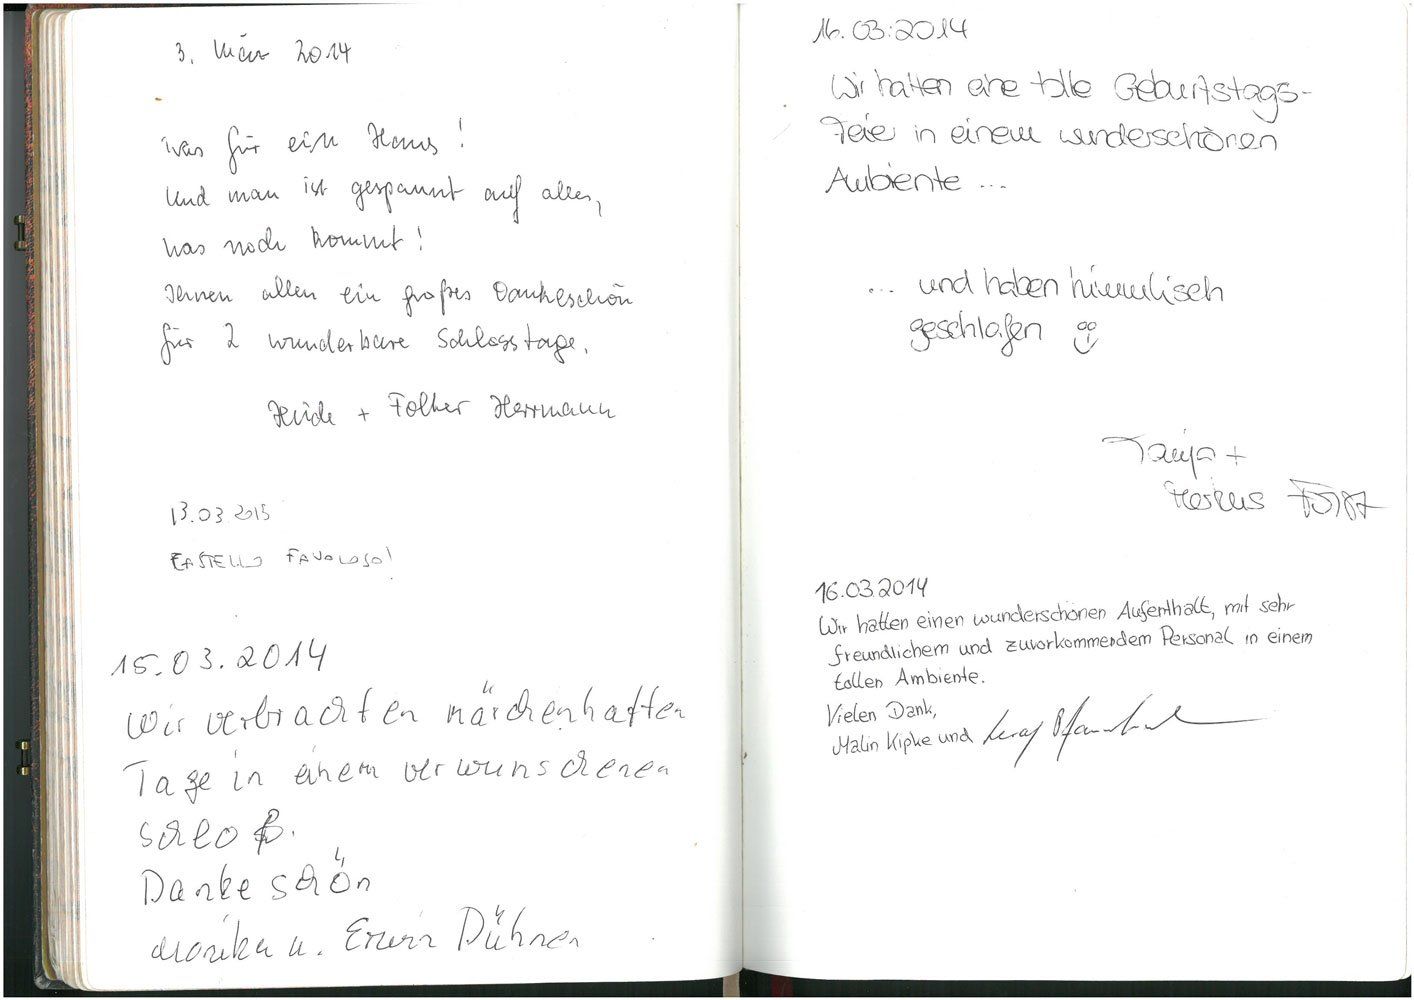 3. März 2014
Was für ein Haus!
Und man ist gespannt auf alles,
was noch kommt!
Ihnen allen ein großes Dankeschön
für 2 wunderbare Schlosstage.
Heide + Folker Herrmann
13.03.2015
CASTELLO FAVOLOSO!
15.03.2014
Wir verbrachten märchenhaften
Tage in einem verwunschenen
Schloß.
Danke schön
Monika u. Erwin Dühnen
16.03.2014
Wir hatten eine tolle Geburtstags-
feier in einem wunderschönen
Ambiente ...
... und haben himmlisch
geschlafen
Tanja +
Markus
16.03.2014
Wir hatten einen wunderschönen Aufenthalt, mit sehr
freundlichem und zuvorkommendem Personal in einem
tollen Ambiente.
Vielen Dank,
Malin Kipke und